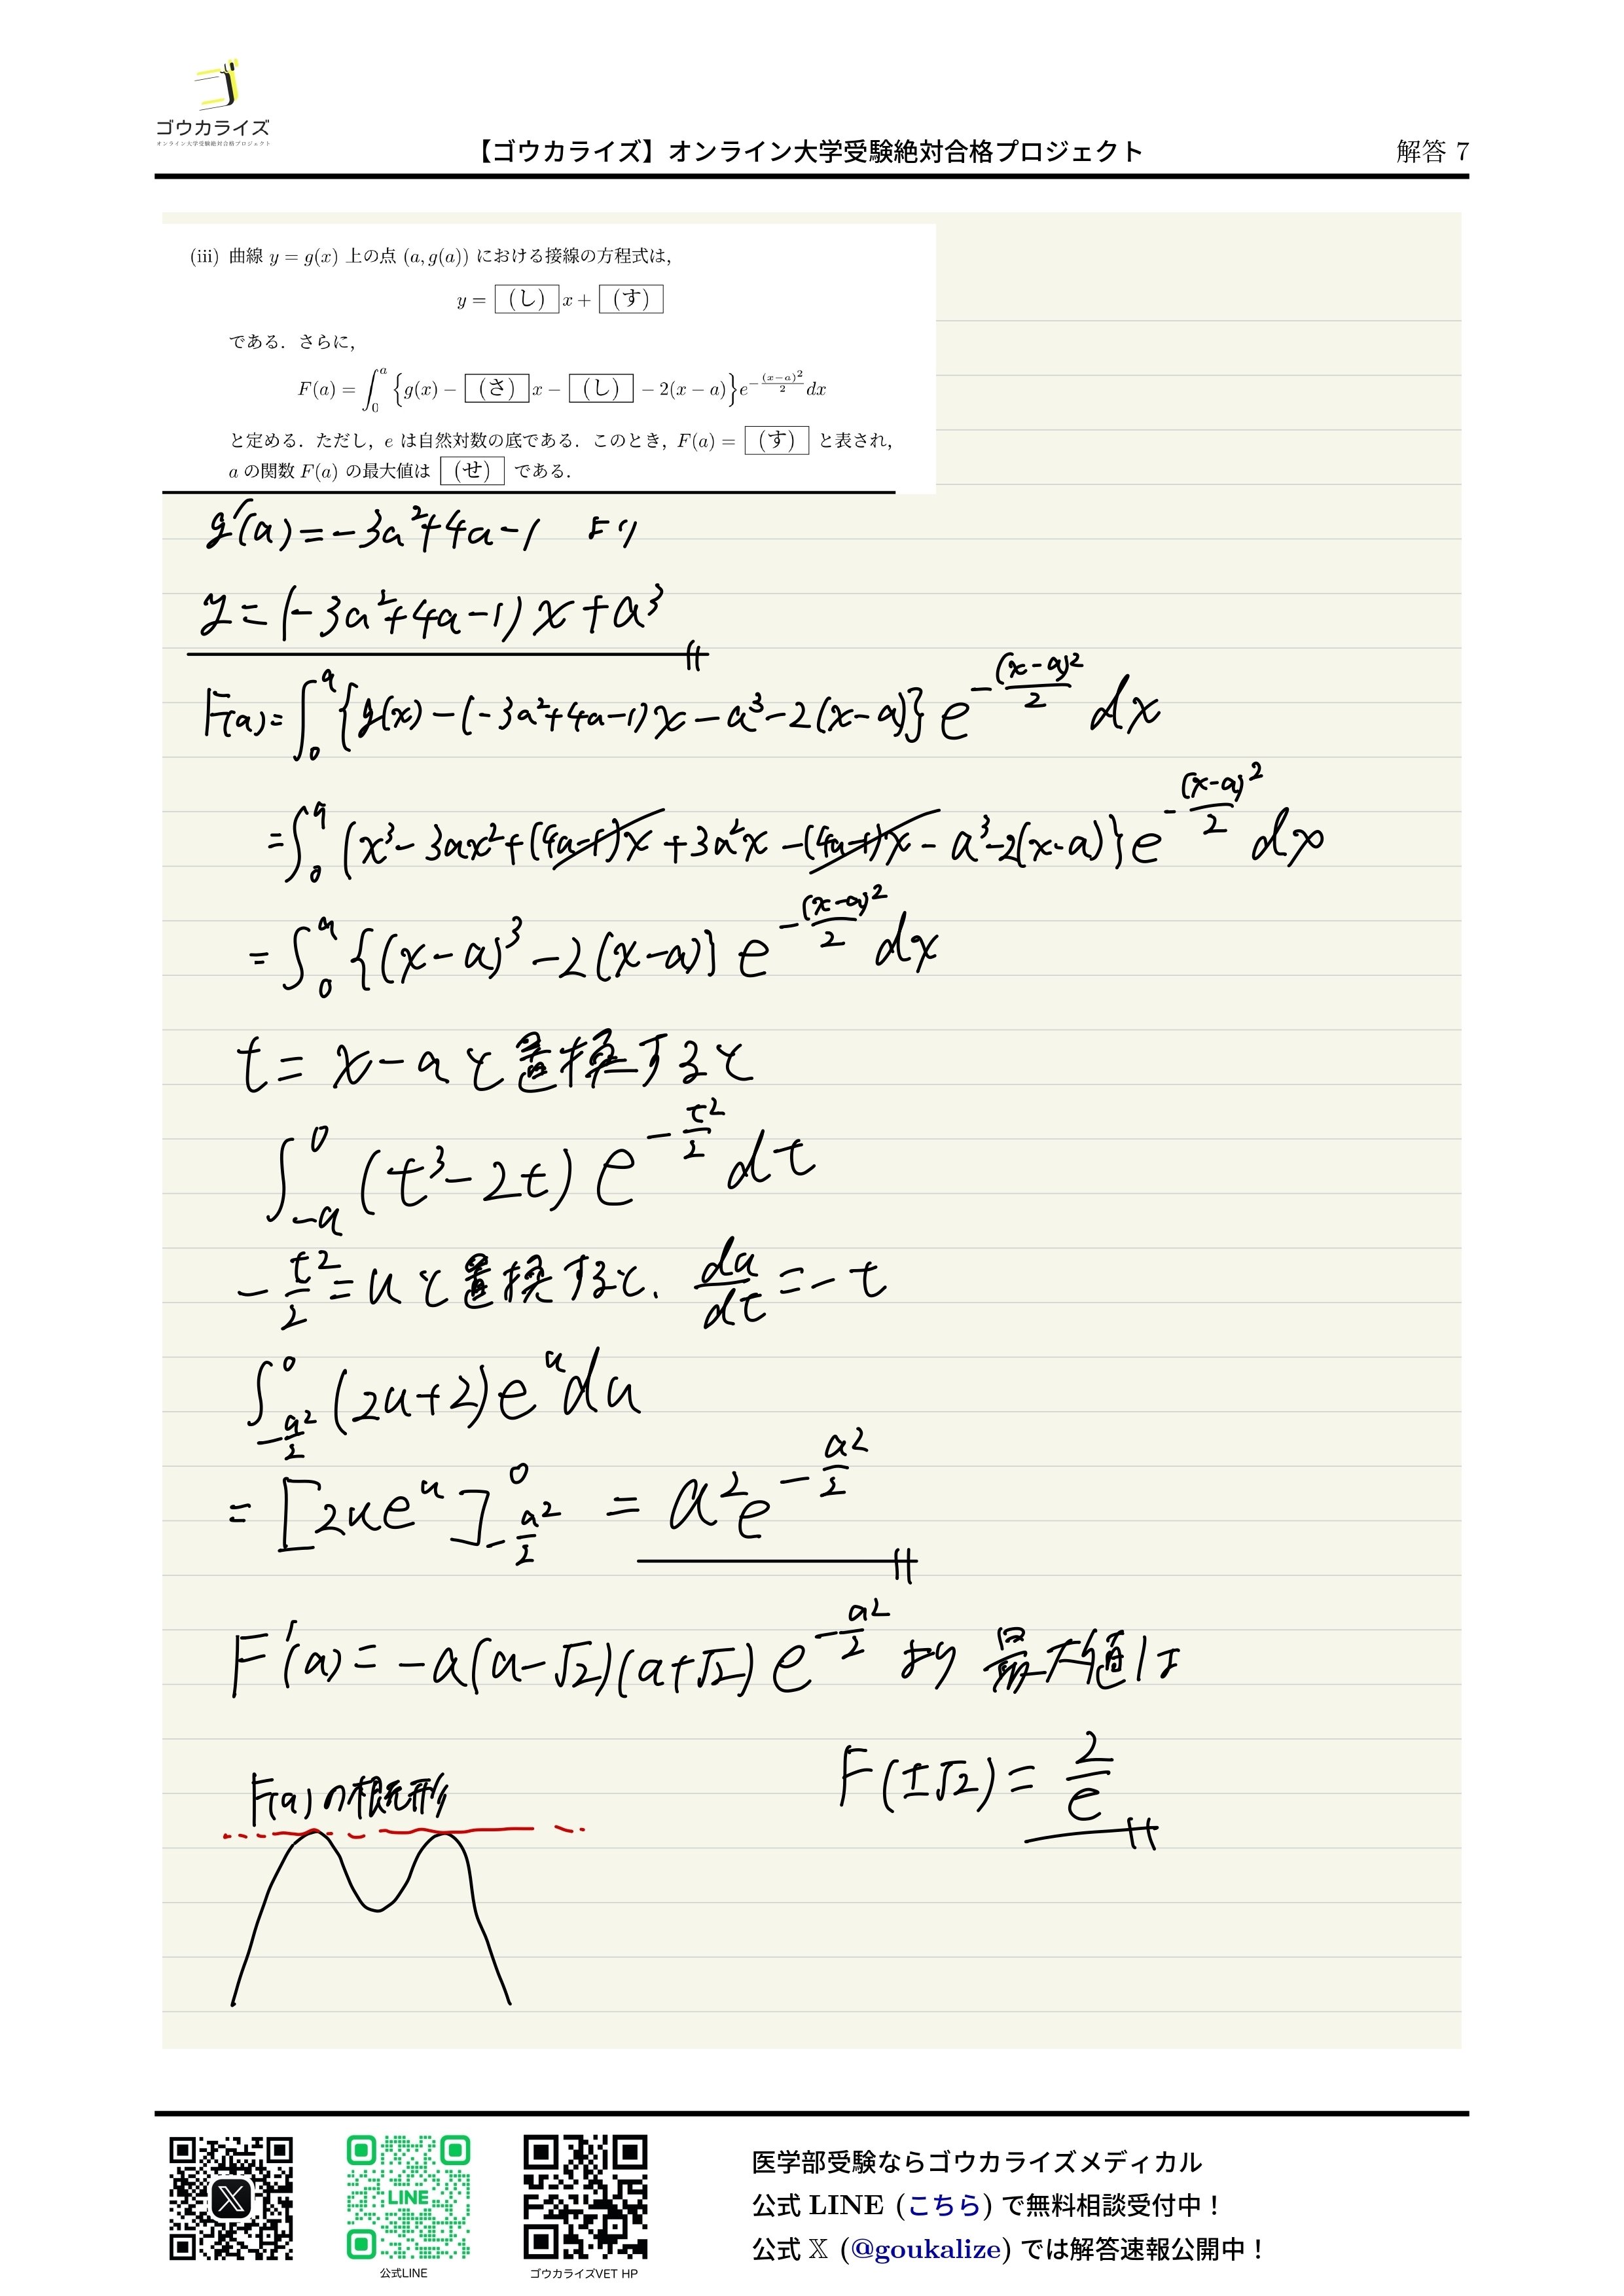 ゴウカライズ
オンライン大学受験絶対合格プロジェクト
【ゴウカライズ】オンライン大学受験絶対合格プロジェクト
解答 7
(iii) 曲線 y = g(x) 上の点 (a, g(a)) における接線の方程式は,
y = (し) x + (す)
である. さらに,
F(a) = ∫_0^a {g(x) − (さ) x − (し) − 2(x − a)} e^{−(x−a)²/2} dx
と定める. ただし, e は自然対数の底である. このとき, F(a) = (す) と表され,
a の関数 F(a) の最大値は (せ) である.
g'(a) = −3a²+4a−1 より
y = (−3a²+4a−1) x + a³
F(a) = ∫_0^a {g(x) − (−3a²+4a−1)x − a³ − 2(x−a)} e^{−(x−a)²/2} dx
= ∫_0^a (x³ − 3ax² + (4a−1)x + 3a²x − (4a−1)x − a³ − 2(x−a)} e^{−(x−a)²/2} dx
= ∫_0^a {(x−a)³ − 2(x−a)} e^{−(x−a)²/2} dx
t = x−a と置換すると
∫_{−a}^0 (t³−2t) e^{−t²/2} dt
−t²/2 = u と置換すると、 du/dt = −t
∫_{−a²/2}^0 (2u+2) e^u du
= [2ue^u]_{−a²/2}^0 = a²e^{−a²/2}
F'(a) = −a(a−√2)(a+√2) e^{−a²/2} より 最大値は
F(±√2) = 2/e
F(a) の概形
LINE
公式LINE
ゴウカライズVET HP
医学部受験ならゴウカライズメディカル
公式 LINE (こちら) で無料相談受付中！
公式 𝕏 (@goukalize) では解答速報公開中！